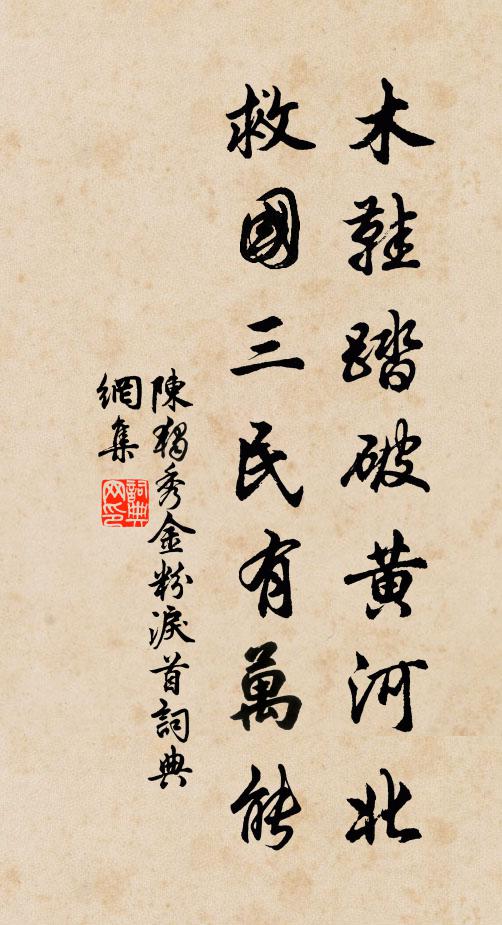 木鞋踏破黄河北
救國三民有萬能
陳獨秀金粉淚首詞典
網集
詞典
网印